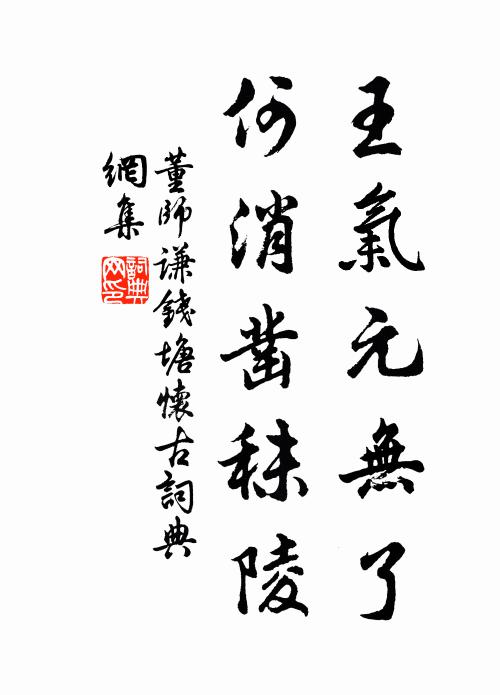 王氣元無了
何消鑿秣陵
董師谦錢塘懷古詞典
網集
詞典
网印